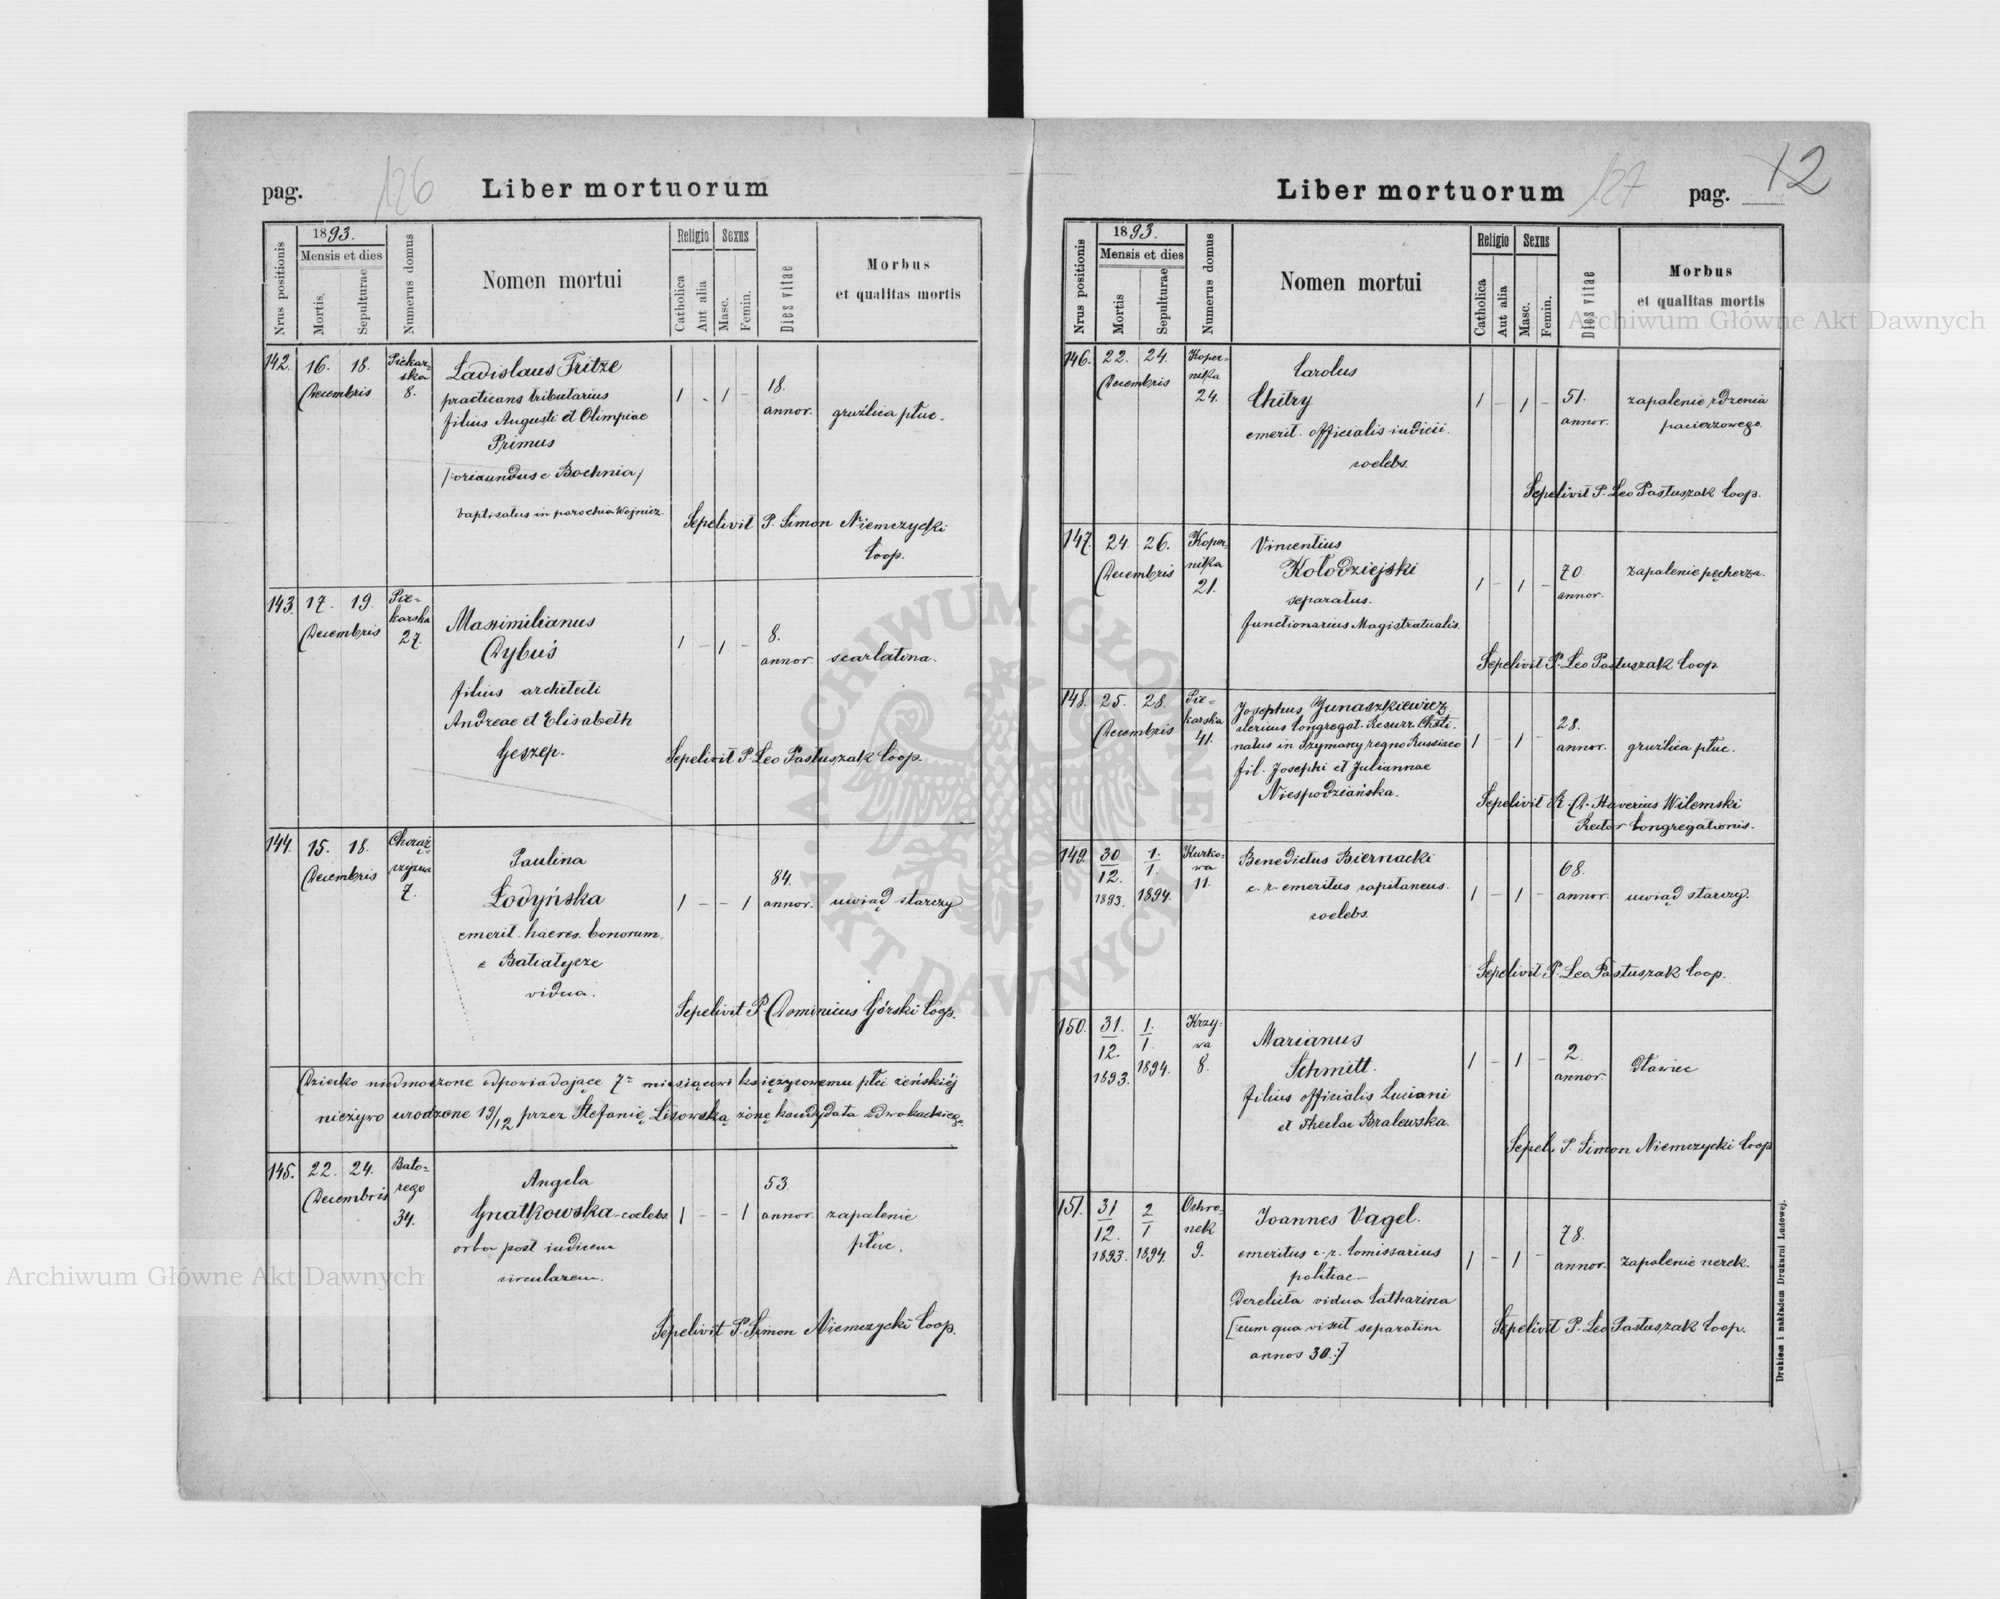 pag. 126 Liber mortuorum
1893.
Nrus positionis
Mensis et dies
Mortis.
Sepulturae
Numerus domus
Nomen mortui
Religio
Catholica
Aut alia
Sexus
Masc.
Femin.
Dies vitae
Morbus
et qualitas mortis
142. 16. 18. Piekar-
ska
Decembris 8.
Ladislaus Fritze
practicans tributarius
filius Augusti et Olimpiae
Primus
/:oriundus e Bochnia/
baptisatus in parochia Wojnicz.
1 - 1 -
18.
annor.
gruźlica płuc.
Sepelivit P. Simon Niemczycki
Coop.
143. 17. 19. Pie-
karska
Decembris 27.
Maximilianus
Dybuś
filius architecti
Andreae et Elisabeth
Geszep.
1 - 1 -
8.
annor.
scarlatina.
Sepelivit P. Leo Pastuszak Coop.
144. 15. 18. Chorąż-
czyzna
Decembris 7.
Paulina
Łodyńska
emerit. haeres. bonorum
e Batiatycze
vidua.
1 - - 1
84.
annor.
uwiąd starczy
Sepelivit P. Dominicus Górski Coop.
Dziecko niedonoszone odpowiadające 7= miesiącowi księżycowemu płci żeńskiéj
nieżywo urodzone 19/12 przez Stefanię Lisowską żonę kandydata adwokackiego
145. 22. 24. Bato-
rego
Decembris 34.
Angela
Gnatkowska - coelebs.
orba post iudicem
circularem.
1 - - 1
53
annor.
zapalenie
płuc.
Sepelivit P. Simon Niemczycki Coop.
Liber mortuorum 127 pag. 12
1893.
Nrus positionis
Mensis et dies
Mortis
Sepulturae
Numerus domus
Nomen mortui
Religio
Catholica
Aut alia
Sexus
Masc.
Femin.
Dies vitae
Morbus
et qualitas mortis
146. 22. 24. Koper-
nika
Decembris 24.
Carolus
Chitry
emerit. officialis iudicii.
coelebs.
1 - 1 -
51.
annor.
zapalenie rdzenia
pacierzowego.
Sepelivit P. Leo Pastuszak Coop.
147. 24. 26. Koper-
nika
Decembris 21.
Vincentius
Kołodziejski
separatus.
functionarius Magistratualis.
1 - 1 -
70.
annor.
zapalenie pęcherza.
Sepelivit P. Leo Pastuszak Coop
148. 25. 28. Pie-
karska
Decembris 41.
Josephus Junaszkiewicz
clericus Congregat. Resurr. Chsti.
natus in Szymany regno Russiaco
fil. Josephi et Juliannae
Niespodziańska.
1 - 1 -
28.
annor.
gruźlica płuc.
Sepelivit R. D. Xaverius Wilemski
Rector Congregationis.
149. 30/12. 1893. 1./1. 1894. Kurko-
wa
11.
Benedictus Biernacki
c. r. emeritus capitaneus.
coelebs.
1 - 1 -
68.
annor.
uwiąd starczy.
Sepelivit P. Leo Pastuszak Coop.
150. 31./12. 1893. 1./1. 1894. Krzy-
wa
8.
Marianus
Schmitt.
filius officialis Luciani
et Theclae Bralewska.
1 - 1 -
2.
annor.
dławiec
Sepel. P. Simon Niemczycki Coop
151. 31/12. 1893. 2/1 1894. Ochro-
nek
9.
Joannes Vagel.
emeritus c. r. Comissarius
politiae -
derelicta vidua Catharina
[:cum qua vixit separatim
annos 30:]
1 - 1 -
78.
annor.
zapalenie nerek.
Sepelivit P. Leo Pastuszak Coop.
Drukiem i nakładem Drukarni Ludowej.
Archiwum Główne Akt Dawnych
Archiwum Główne Akt Dawnych
ARCHIWUM GŁÓWNE AKT DAWNYCH